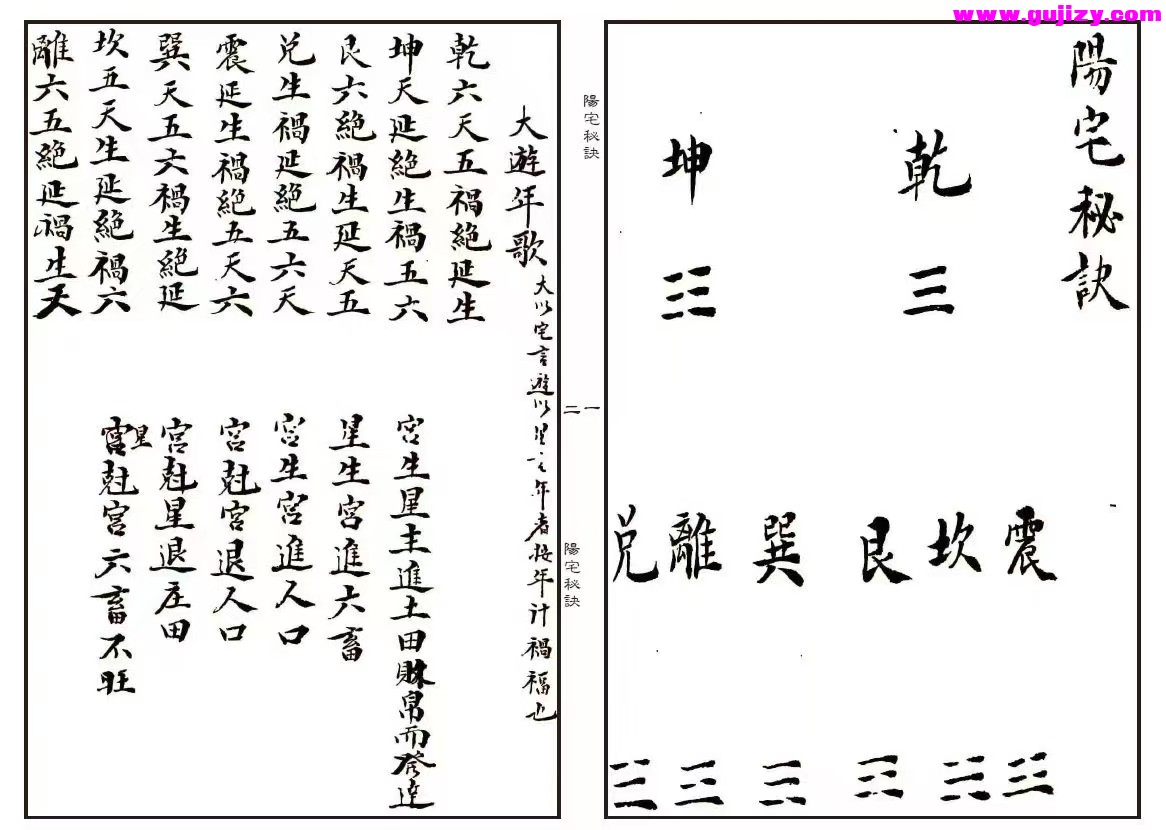 www.gujizy.com
陽宅秘訣
乾
坤
震
坎
艮
巽
離
兌
陽宅秘訣
一
二
陽宅秘訣
大遊年歌 大以宅言遊以星言年者按年計禍福也
乾六天五禍絕延生
坤天延絕生禍五六
艮六絕禍生延天五
兌生禍延絕五六天
震延生禍絕五天六
巽天五六禍生絕延
坎五天生延絕禍六
離六五絕延禍生天
宮生星主進土田財帛而發達
星生宮進六畜
宮生宮進人口
宮尅宮退人口
宮尅星退庄田
星
宮尅宮六畜不旺